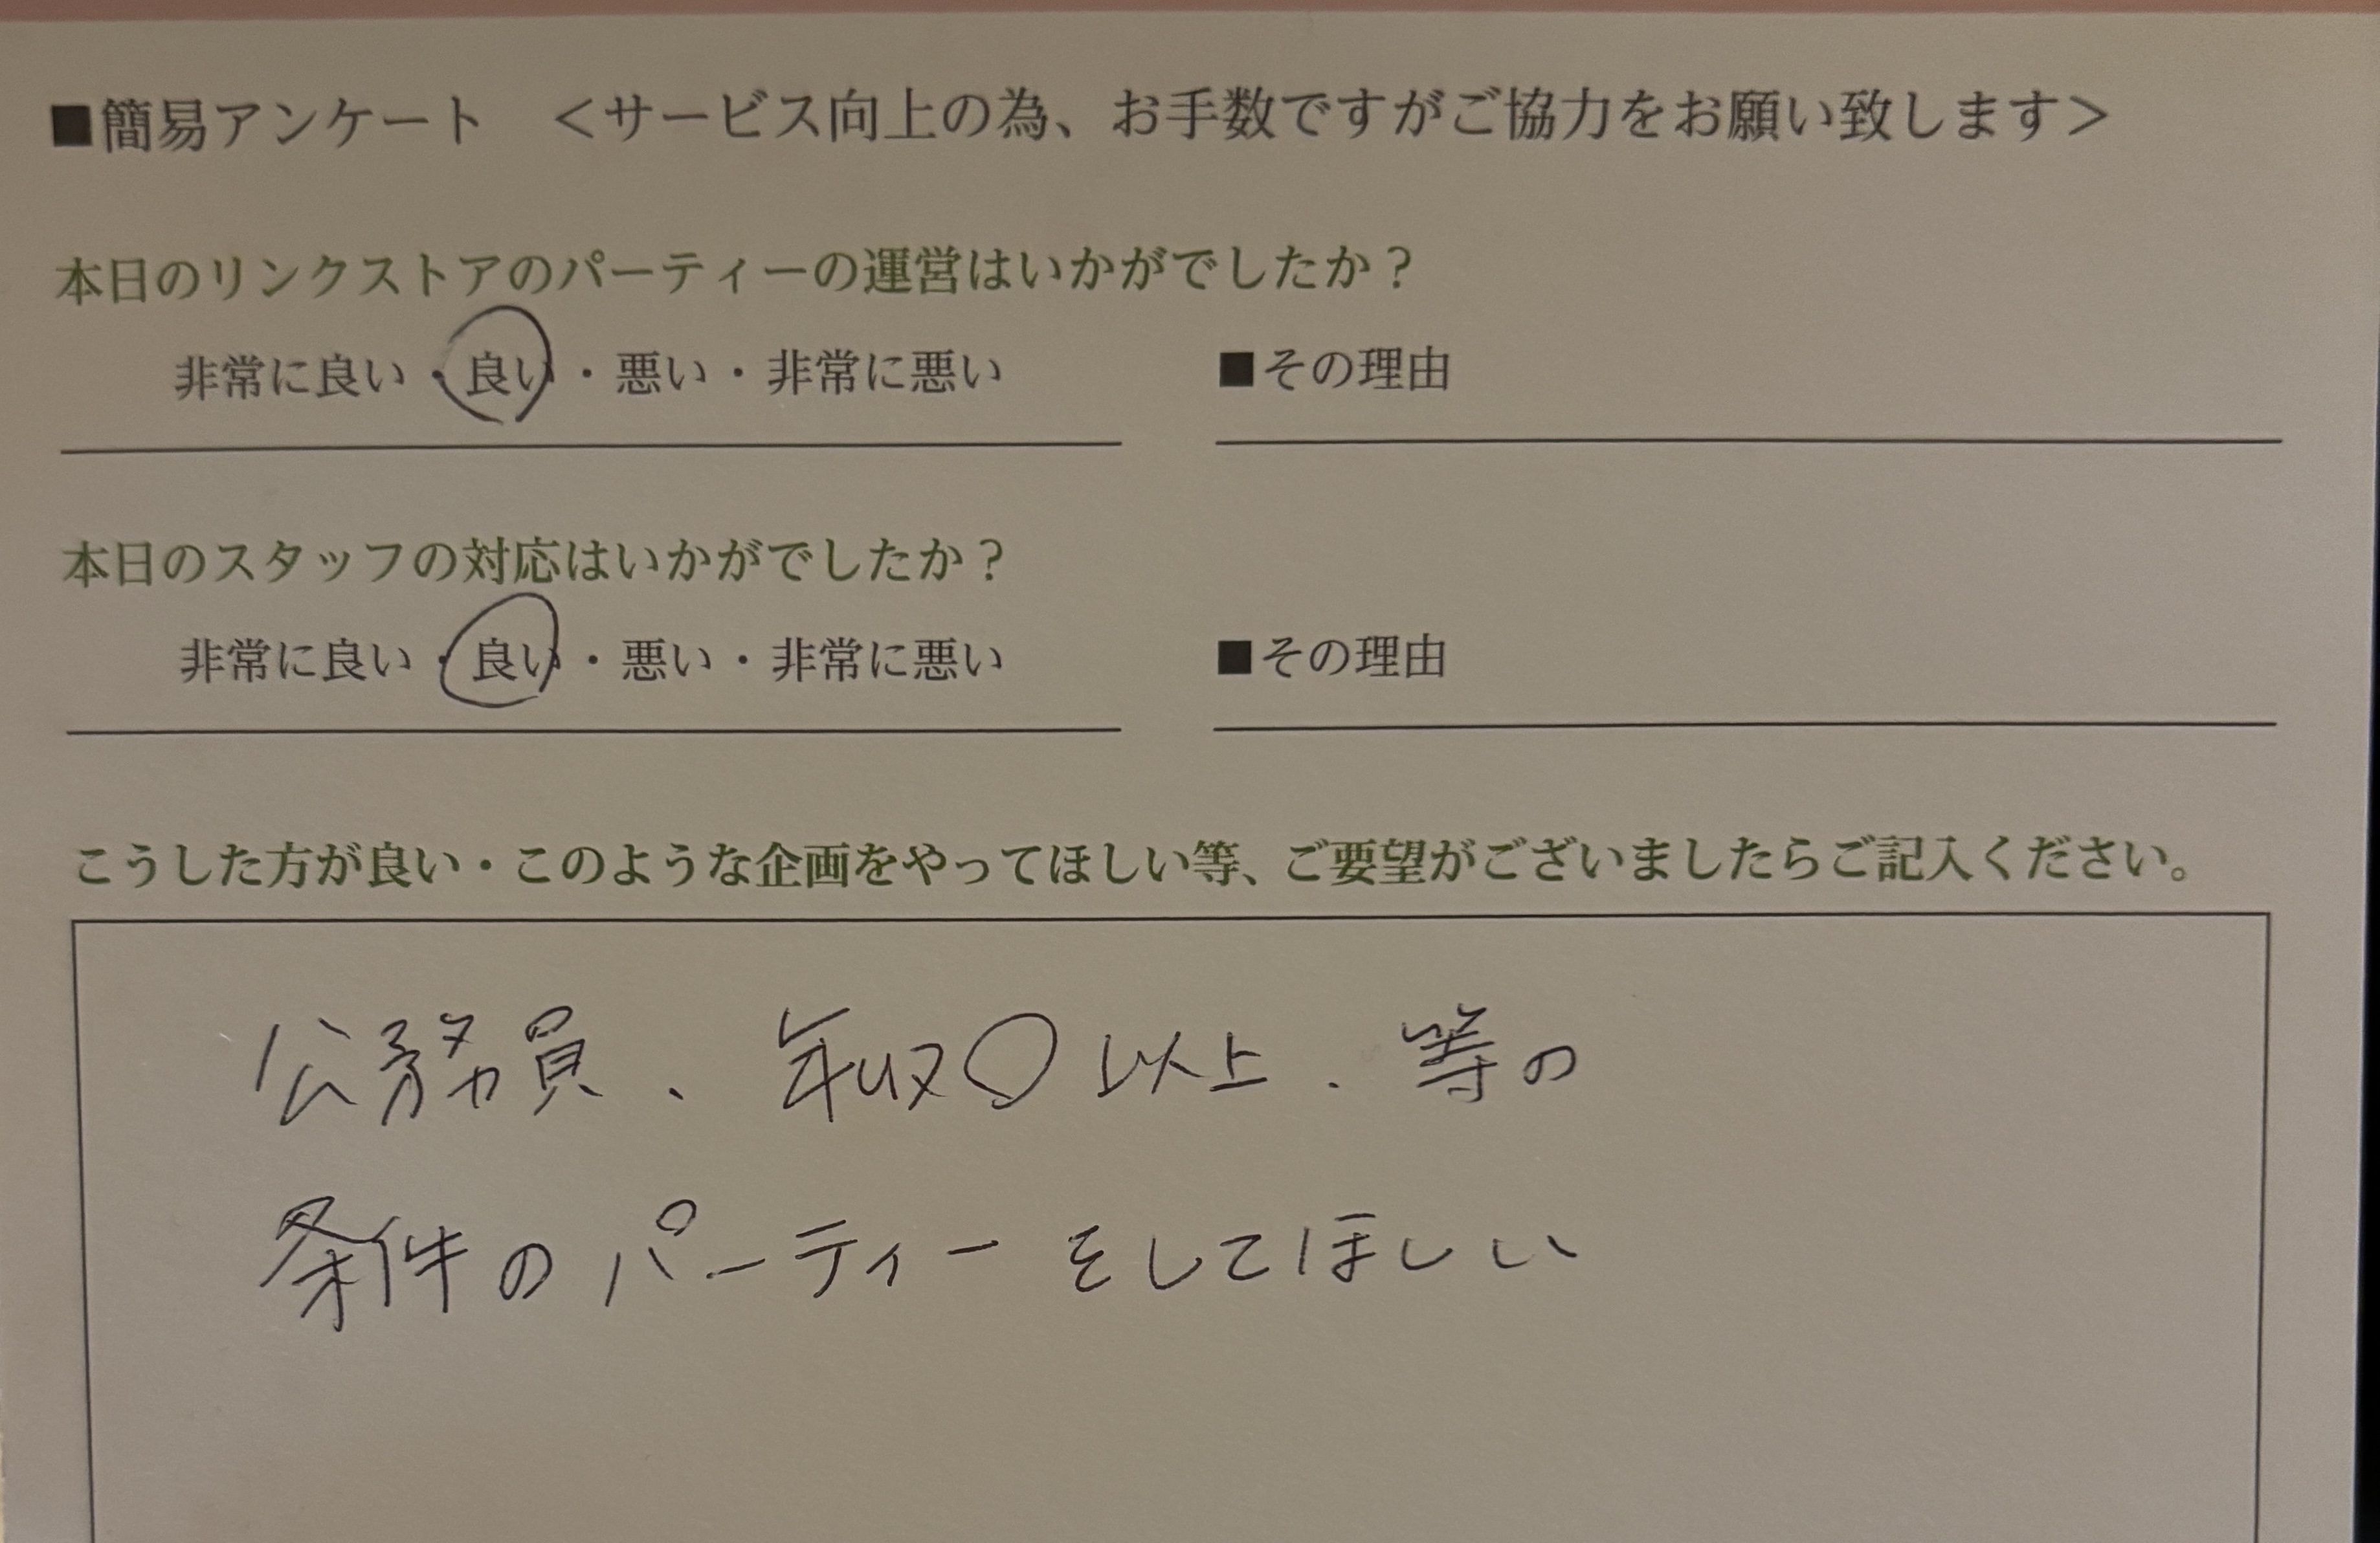 ■簡易アンケート　＜サービス向上の為、お手数ですがご協力をお願い致します＞
本日のリンクストアのパーティーの運営はいかがでしたか？
非常に良い・良い・悪い・非常に悪い　■その理由
本日のスタッフの対応はいかがでしたか？
非常に良い・良い・悪い・非常に悪い　■その理由
こうした方が良い・このような企画をやってほしい等、ご要望がございましたらご記入ください。
公務員、年収〇以上、等の
条件のパーティーをしてほしい